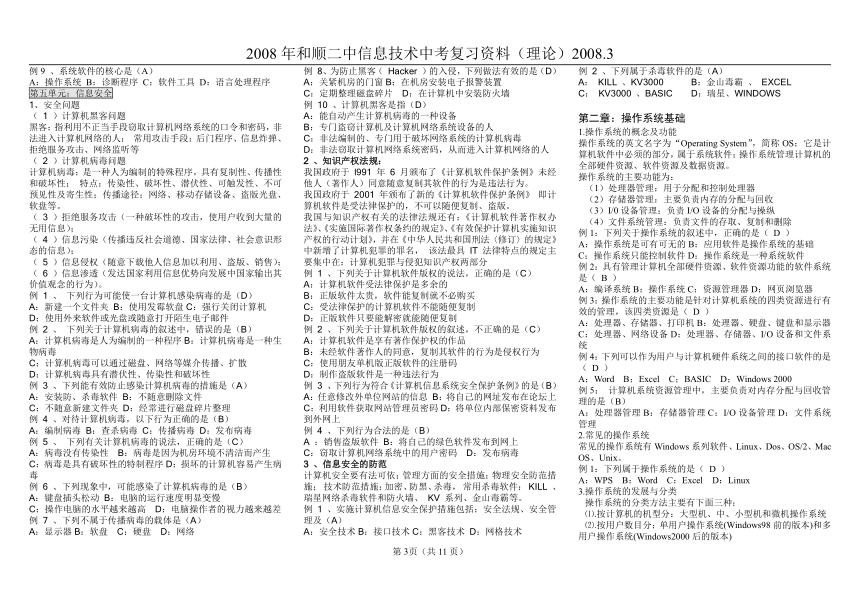 2008 年和顺二中信息技术中考复习资料（理论）2008.3
例 9 、系统软件的核心是（A）
A：操作系统 B：诊断程序 C：软件工具 D：语言处理程序
第五单元：信息安全
1、安全问题
（ 1 ）计算机黑客问题
黑客：指利用不正当手段窃取计算机网络系统的口令和密码，非
法进入计算机网络的人； 常用攻击手段：后门程序、信息炸弹、
拒绝服务攻击、网络监听等
（ 2 ）计算机病毒问题
计算机病毒：是一种人为编制的特殊程序，具有复制性、传播性
和破坏性； 特点：传染性、破坏性、潜伏性、可触发性、不可
预见性及寄生性；传播途径：网络、移动存储设备、盗版光盘、
软盘等。
（ 3 ）拒绝服务攻击（一种破坏性的攻击，使用户收到大量的
无用信息）；
（ 4 ）信息污染（传播违反社会道德、国家法律、社会意识形
态的信息）；
（ 5 ）信息侵权（随意下载他人信息加以利用、盗版、销售）；
（ 6 ）信息渗透（发达国家利用信息优势向发展中国家输出其
价值观念的行为）。
例 1 、 下列行为可能使一台计算机感染病毒的是（D）
A：新建一个文件夹 B：使用发霉软盘 C：强行关闭计算机
D：使用外来软件或光盘或随意打开陌生电子邮件
例 2 、 下列关于计算机病毒的叙述中，错误的是（B）
A：计算机病毒是人为编制的一种程序 B：计算机病毒是一种生
物病毒
C：计算机病毒可以通过磁盘、网络等媒介传播、扩散
D：计算机病毒具有潜伏性、传染性和破坏性
例 3 、下列能有效防止感染计算机病毒的措施是（A）
A：安装防、杀毒软件 B：不随意删除文件
C：不随意新建文件夹 D：经常进行磁盘碎片整理
例 4 、对待计算机病毒，以下行为正确的是（B）
A：编制病毒 B：查杀病毒 C：传播病毒 D：发布病毒
例 5 、 下列有关计算机病毒的说法，正确的是（C）
A：病毒没有传染性 B：病毒是因为机房环境不清洁而产生
C：病毒是具有破坏性的特制程序 D：损坏的计算机容易产生病
毒
例 6 、下列现象中，可能感染了计算机病毒的是（B）
A：键盘插头松动 B：电脑的运行速度明显变慢
C：操作电脑的水平越来越高 D：电脑操作者的视力越来越差
例 7 、下列不属于传播病毒的载体是（A）
A：显示器 B：软盘 C：硬盘 D：网络
例 8、为防止黑客（ Hacker ）的入侵，下列做法有效的是（D）
A：关紧机房的门窗 B：在机房安装电子报警装置
C：定期整理磁盘碎片 D：在计算机中安装防火墙
例 10 、计算机黑客是指（D）
A：能自动产生计算机病毒的一种设备
B：专门盗窃计算机及计算机网络系统设备的人
C：非法编制的、专门用于破坏网络系统的计算机病毒
D：非法窃取计算机网络系统密码，从而进入计算机网络的人
2 、知识产权法规：
我国政府于 I991 年 6 月颁布了《计算机软件保护条例》未经
他人（著作人）同意随意复制其软件的行为是违法行为。
我国政府于 2001 年颁布了新的《计算机软件保护条例》 即计
算机软件是受法律保护的，不可以随便复制、盗版。
我国与知识产权有关的法律法规还有：《计算机软件著作权办
法》、《实施国际著作权条约的规定》、《有效保护计算机实施知识
产权的行动计划》，并在《中华人民共和国刑法（修订）的规定》
中新增了计算机犯罪的罪名， 该法最具 IT 法律特点的规定主
要集中在：计算机犯罪与侵犯知识产权两部分
例 1 、下列关于计算机软件版权的说法，正确的是（C）
A：计算机软件受法律保护是多余的
B：正版软件太贵，软件能复制就不必购买
C：受法律保护的计算机软件不能随便复制
D：正版软件只要能解密就能随便复制
例 2 、下列关于计算机软件版权的叙述，不正确的是（C）
A：计算机软件是享有著作保护权的作品
B：未经软件著作人的同意，复制其软件的行为是侵权行为
C：使用朋友单机版正版软件的注册码
D：制作盗版软件是一种违法行为
例 3 、下列行为符合《计算机信息系统安全保护条例》的是（B）
A：任意修改外单位网站的信息 B：将自己的网址发布在论坛上
C：利用软件获取网站管理员密码 D：将单位内部保密资料发布
到外网上
例 4 、下列行为合法的是（B）
A ：销售盗版软件 B：将自己的绿色软件发布到网上
C：窃取计算机网络系统中的用户密码 D：发布病毒
3 、信息安全的防范
计算机安全要有法可依；管理方面的安全措施；物理安全防范措
施； 技术防范措施：加密、防黑、杀毒， 常用杀毒软件： KILL 、
瑞星网络杀毒软件和防火墙、 KV 系列、金山毒霸等。
例 1 、实施计算机信息安全保护措施包括：安全法规、安全管
理及（A）
A：安全技术 B：接口技术 C：黑客技术 D：网格技术
例 2 、下列属于杀毒软件的是（A）
A： KILL 、KV3000 B：金山毒霸 、 EXCEL
C； KV3000 、BASIC D：瑞星、WINDOWS
第二章：操作系统基础
1.操作系统的概念及功能
操作系统的英文名字为“Operating System”，简称 OS：它是计
算机软件中必须的部分，属于系统软件；操作系统管理计算机的
全部硬件资源、软件资源及数据资源。
操作系统的主要功能为：
（1）处理器管理：用于分配和控制处理器
（2）存储器管理：主要负责内存的分配与回收
（3）I/0 设备管理：负责 I/O 设备的分配与操纵
（4）文件系统管理：负责文件的存取、复制和删除
例 1：下列关于操作系统的叙述中，正确的是（ D ）
A：操作系统是可有可无的 B：应用软件是操作系统的基础
C：操作系统只能控制软件 D：操作系统是一种系统软件
例 2：具有管理计算机全部硬件资源、软件资源功能的软件系统
是（ B ）
A：编译系统 B：操作系统 C：资源管理器 D：网页浏览器
例 3：操作系统的主要功能是针对计算机系统的四类资源进行有
效的管理，该四类资源是（ D ）
A：处理器、存储器、打印机 B：处理器、硬盘、键盘和显示器
C：处理器、网络设备 D：处理器、存储器、I/O 设备和文件系
统
例 4：下列可以作为用户与计算机硬件系统之间的接口软件的是
（ D ）
A：Word B：Excel C：BASIC D：Windows 2000
例 5： 计算机系统资源管理中，主要负责对内存分配与回收管
理的是（B）
A：处理器管理 B：存储器管理 C：I/O 设备管理 D：文件系统
管理
2.常见的操作系统
常见的操作系统有 Windows 系列软件、Linux、Dos、OS/2、Mac
OS、Unix。
例 1：下列属于操作系统的是（ D ）
A：WPS B：Word C：Excel D：Linux
3.操作系统的发展与分类
操作系统的分类方法主要有下面三种：
⑴.按计算机的机型分：大型机、中、小型机和微机操作系统
⑵.按用户数目分：单用户操作系统(Windows98 前的版本)和多
用户操作系统(Windows2000 后的版本)
第 3页（共 11 页）